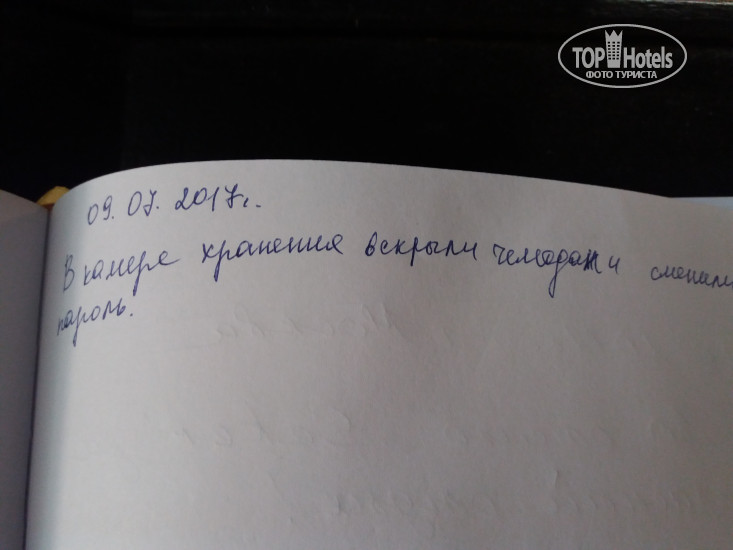 TOP Hotels
ФОТО ТУРИСТА
09.07.2017г.
В камере хранения вскрыли чемодан и сменили
пароль.